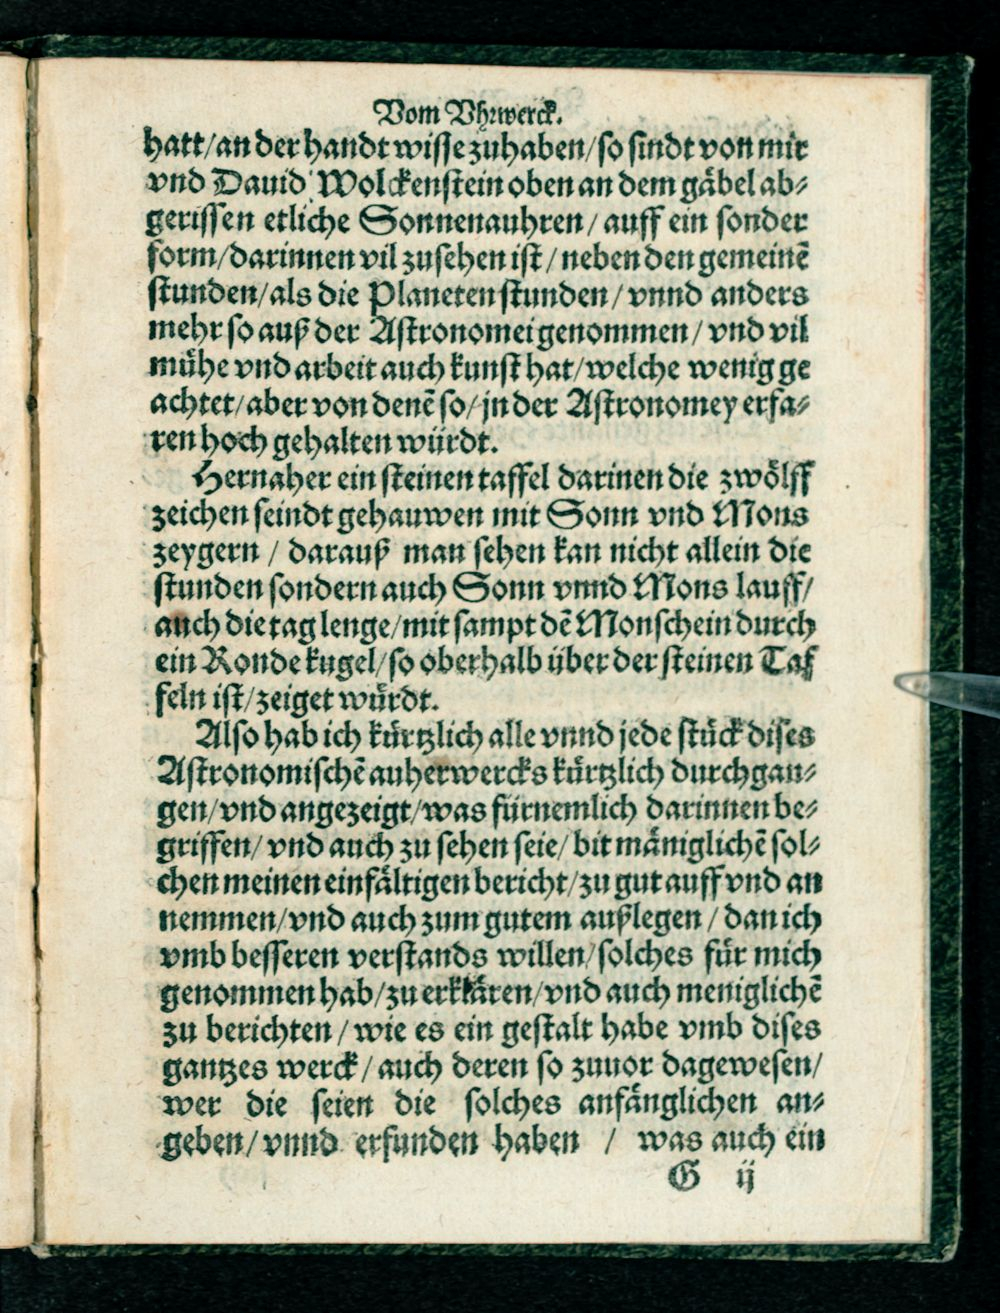 Vom Vhrwerck.
hatt/an der handt wisse zuhaben/so sindt von mir
vnd Dauid Wolckenstein oben an dem gåbel ab⸗
gerissen etliche Sonnenauhren/auff ein sonder
form/darinnen vil zusehen ist/neben den gemeinē
stunden/als die Planetenstunden/vnnd anders
mehr so auß der Astronomei genommen/vnd vil
můhe vnd arbeit auch kunst hat/welche wenig ge
achtet/aber von denē so/jn der Astronomey erfa⸗
ren hoch gehalten würdt.
Hernaher ein steinen taffel darinen die zwôlff
zeichen seindt gehauwen mit Sonn vnd Mons
zeygern / darauß man sehen kan nicht allein die
stunden sondern auch Sonn vnnd Mons lauff/
auch die tag lenge/mit sampt dē Monschein durch
ein Ronde kugel/so oberhalb über der steinen Taf
feln ist/zeiget würdt.
Also hab ich kürtzlich alle vnnd jede stück dises
Astronomischē auherwercks kürtzlich durchgan⸗
gen/vnd angezeigt/was fürnemlich darinnen be⸗
griffen/vnd auch zu sehen seie/bit mäniglichē sol⸗
chen meinen einfåltigen bericht/zu gut auff vnd an
nemmen/vnd auch zum gutem außlegen/dan ich
vmb besseren verstands willen/solches für mich
genommen hab/zu erklåren/vnd auch meniglichē
zu berichten/wie es ein gestalt habe vmb dises
gantzes werck/auch deren so zuuor dagewesen/
wer die seien die solches anfånglichen an⸗
geben/vnnd erfunden haben / was auch ein
G ij